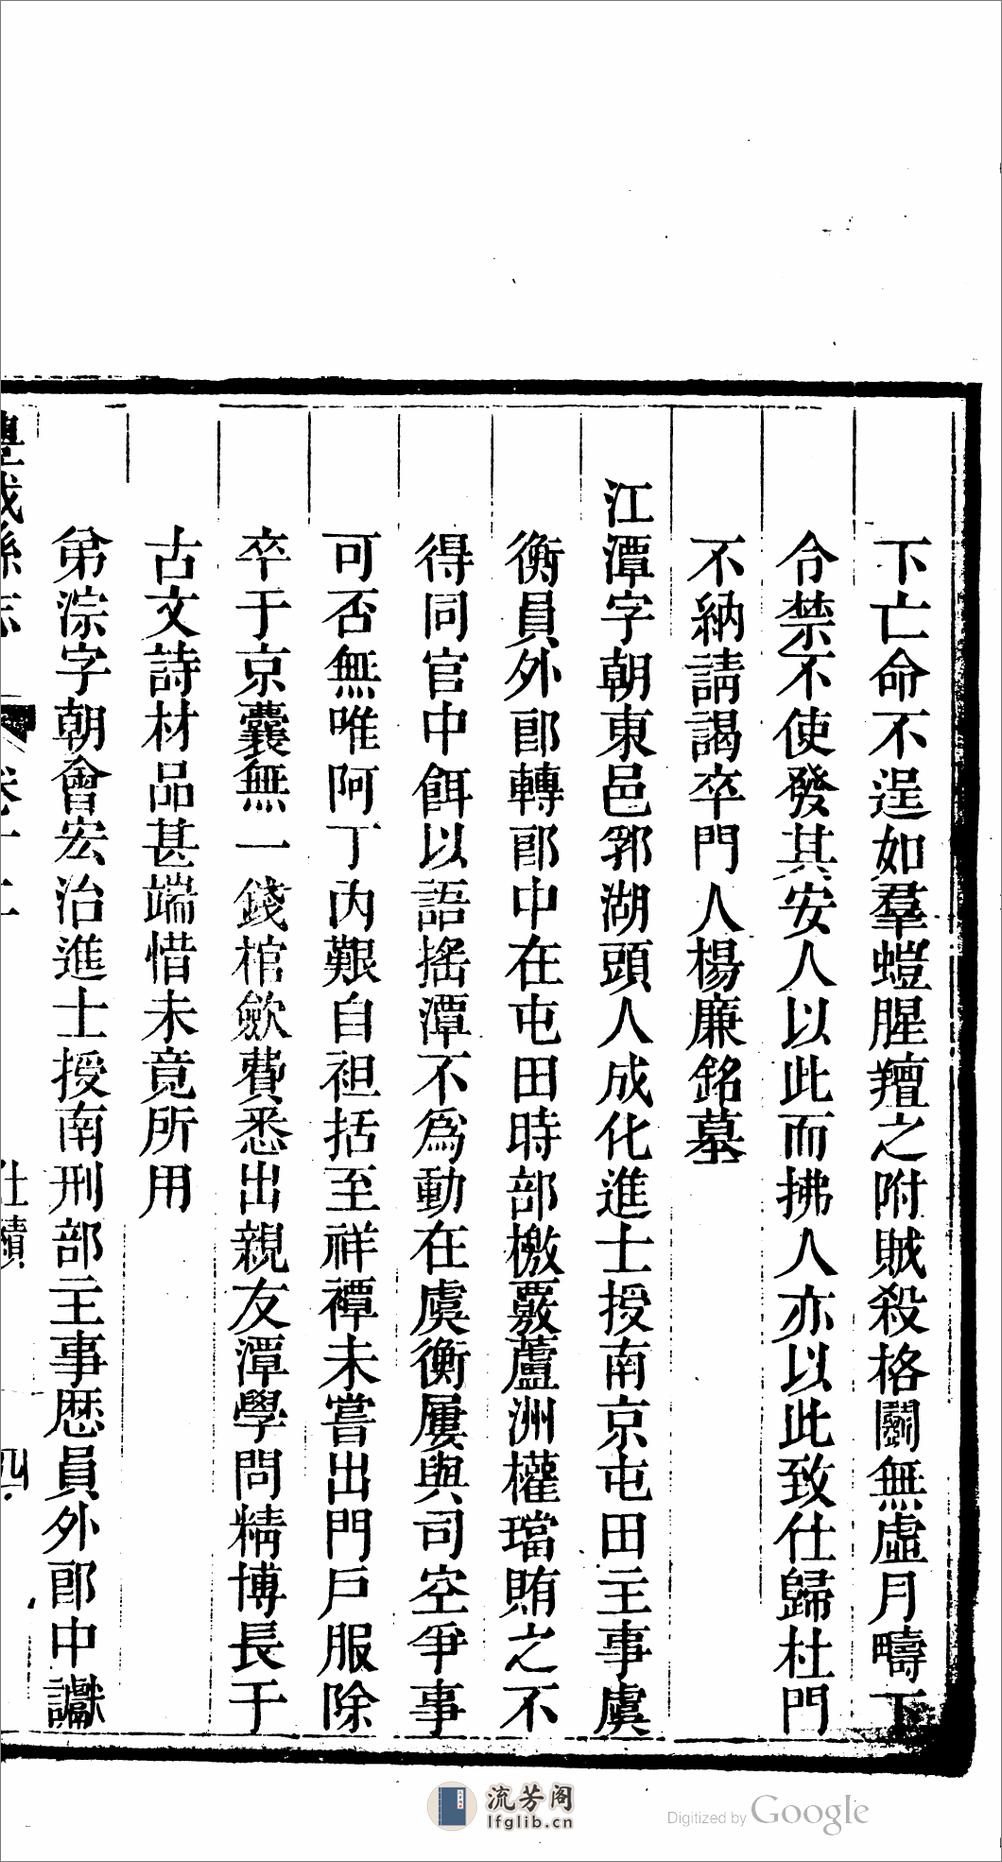 下亡命不逞如羣螘腥羶之附賊殺格鬭無虛月疇下
令禁不使發其安人以此而拂人亦以此致仕歸杜門
不納請謁卒門人楊廉銘墓
江潭字朝東邑郛湖頭人成化進士授南京屯田主事虞
衡員外郎轉郎中在屯田時部檄覈蘆洲權璫賄之不
得同官中餌以語搖潭不爲動在虞衡屢與司空爭事
可否無唯阿丁內艱自袒括至祥禫未嘗出門戶服除
卒于京囊無一錢棺歛費悉出親友潭學問精博長于
古文詩材品甚端惜未竟所用
弟淙字朝會宏治進士授南刑部主事歷員外郎中讞
豐城縣志 卷十 仕績 四
流芳阁
lfglib.cn
Digitized by Google